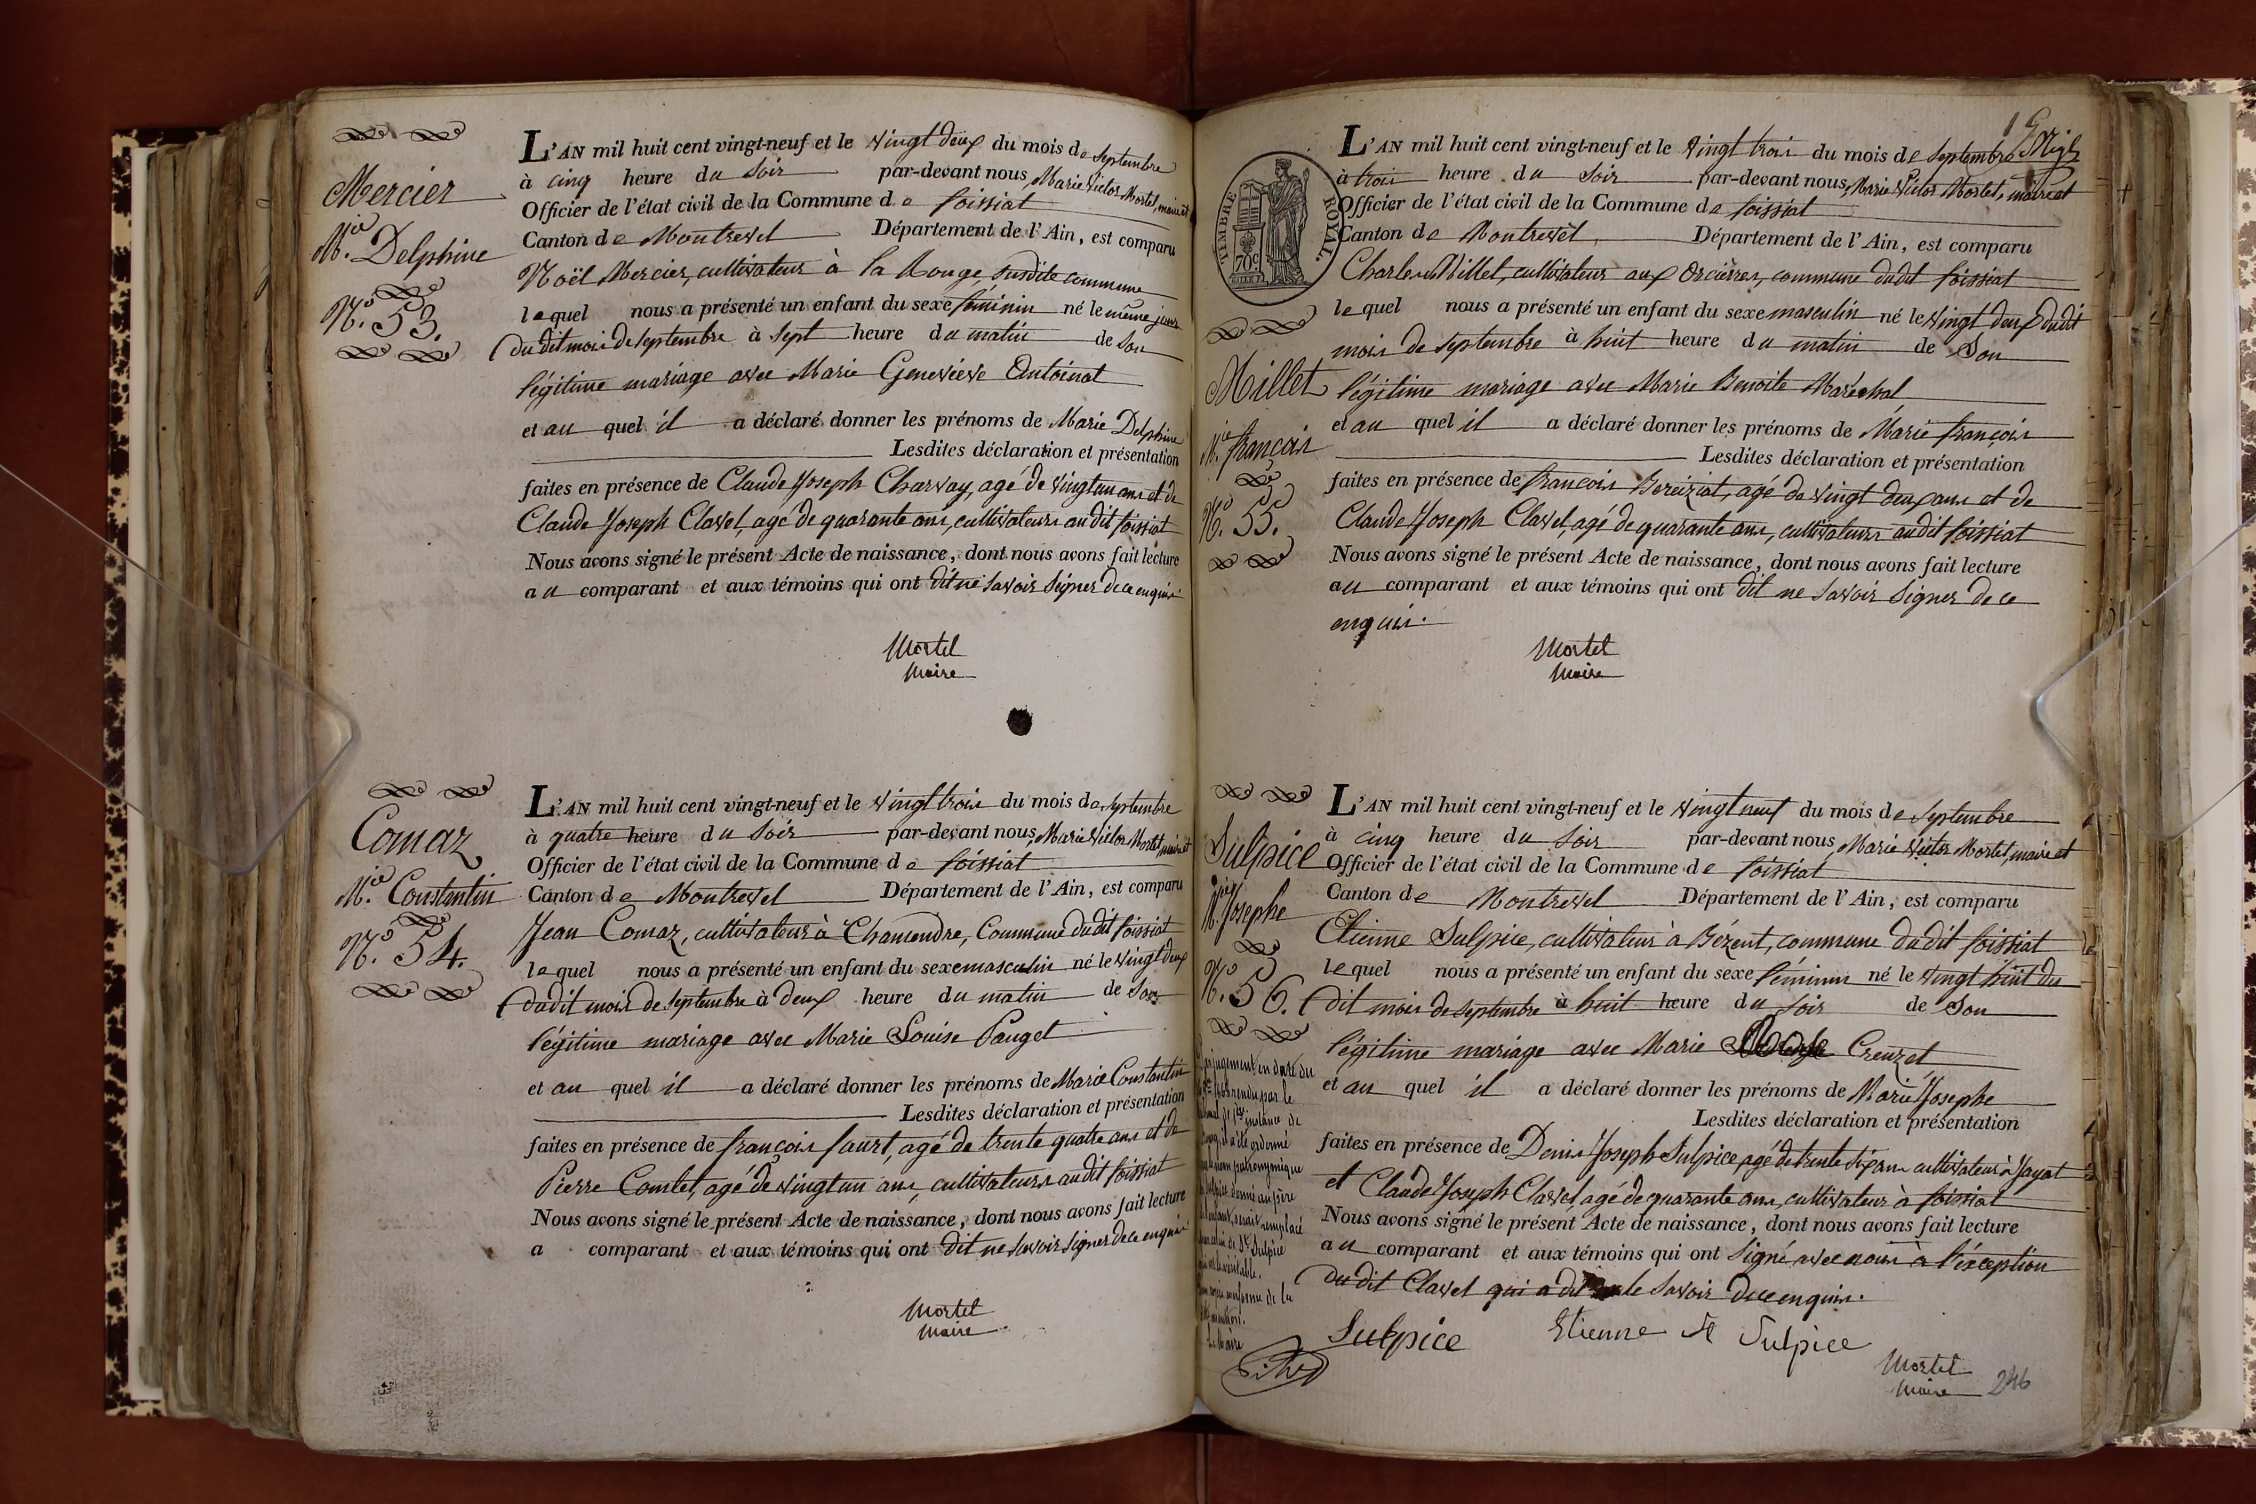 Mercier
M.ie Delphine
N.o 53.
L'AN mil huit cent vingt-neuf et le vingt deux du mois de septembre
à cinq heure du soir par-devant nous, Marie Victor Mortel, maire et
Officier de l'état civil de la Commune de foissiat
Canton de Montrevel Département de l'Ain, est comparu
Noël Mercier, cultivateur à la Rouge, susdite commune
lequel nous a présenté un enfant du sexe féminin né le même jour
du dit mois de septembre à sept heure du matin de son
légitime mariage avec Marie Geneviève Antoinat
et au quel il a déclaré donner les prénoms de Marie Delphine
Lesdites déclaration et présentation
faites en présence de Claude Joseph Charvay, agé de vingt un ans et de
Claude Joseph Clavel, agé de quarante ans, cultivateurs au dit foissiat
Nous avons signé le présent Acte de naissance, dont nous avons fait lecture
au comparant et aux témoins qui ont dit ne savoir signer de ce enquis.
Mortel
Maire
Comaz
M.ie Constantin
N.o 54.
L'AN mil huit cent vingt-neuf et le vingt trois du mois de septembre
à quatre heure du soir par-devant nous, Marie Victor Mortel, maire et
Officier de l'état civil de la Commune de foissiat
Canton de Montrevel Département de l'Ain, est comparu
Jean Comaz, cultivateur à Chamendre, Commune du dit foissiat
lequel nous a présenté un enfant du sexe masculin né le vingt deux
du dit mois de septembre à deux heure du matin de son
légitime mariage avec Marie Louise Pauget
et au quel il a déclaré donner les prénoms de Marie Constantin
Lesdites déclaration et présentation
faites en présence de françois faurt, agé de trente quatre ans et de
Pierre Comlet, agé de vingt un ans, cultivateurs au dit foissiat
Nous avons signé le présent Acte de naissance, dont nous avons fait lecture
a comparant et aux témoins qui ont dit ne savoir signer de ce enquis
Mortel
Maire
TIMBRE ROYAL.
70c
Millet
M.ie françois
N.o 55.
L'AN mil huit cent vingt-neuf et le vingt trois du mois de septembre
à trois heure du soir par-devant nous, Marie Victor Mortel, maire et
Officier de l'état civil de la Commune de foissiat
Canton de Montrevel, Département de l'Ain, est comparu
Charles Millet, cultivateur aux Orcières, commune dudit foissiat
lequel nous a présenté un enfant du sexe masculin né le vingt deux dudit
mois de septembre à huit heure du matin de Son
légitime mariage avec Marie Benoite Maréchal
et au quel il a déclaré donner les prénoms de Marie françois
Lesdites déclaration et présentation
faites en présence de francois Bereiziat, agé de vingt deux ans et de
Claude Joseph Clavel, agé de quarante ans, cultivateurs au dit foissiat
Nous avons signé le présent Acte de naissance, dont nous avons fait lecture
au comparant et aux témoins qui ont dit ne savoir signer de ce
enquis.
Mortel
Maire
Sulpice
M.ie Josephe
N.o 56.
L'AN mil huit cent vingt-neuf et le vingt neuf du mois de septembre
à cinq heure du soir par-devant nous Marie Victor Mortel, maire et
Officier de l'état civil de la Commune de foissiat
Canton de Montrevel Département de l'Ain, est comparu
Etienne Sulpice, cultivateur à Bézent, commune du dit foissiat
lequel nous a présenté un enfant du sexe féminin né le vingt huit du
dit mois de septembre à huit heure du soir de Son
légitime mariage avec Marie Creuzet
et au quel il a déclaré donner les prénoms de Marie Josephe
Lesdites déclaration et présentation
faites en présence de Denis Joseph Sulpice, agé de trente six ans cultivateur à Jayat
et Claude Joseph Clavel, agé de quarante ans, cultivateur à foissiat
Nous avons signé le présent Acte de naissance, dont nous avons fait lecture
au comparant et aux témoins qui ont signé avec nous à l'éxception
du dit Clavel qui a dit ne le savoir de ce enquis.
jugement en date du
rendu par le
instance de
a été ordonné
nom patronymique
Sulpice donné au père
l'enfant, serait remplacé
par celui de St Sulpice
qui est le véritable.
conforme de la
Le Maire
Sulpice Etienne St Sulpice
Mortel
Maire
246